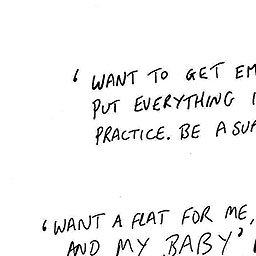 ' WANT TO GET EM
PUT EVERYTHING I
PRACTICE. BE A SUR
'WANT A FLAT FOR ME,
AND MY BABY'